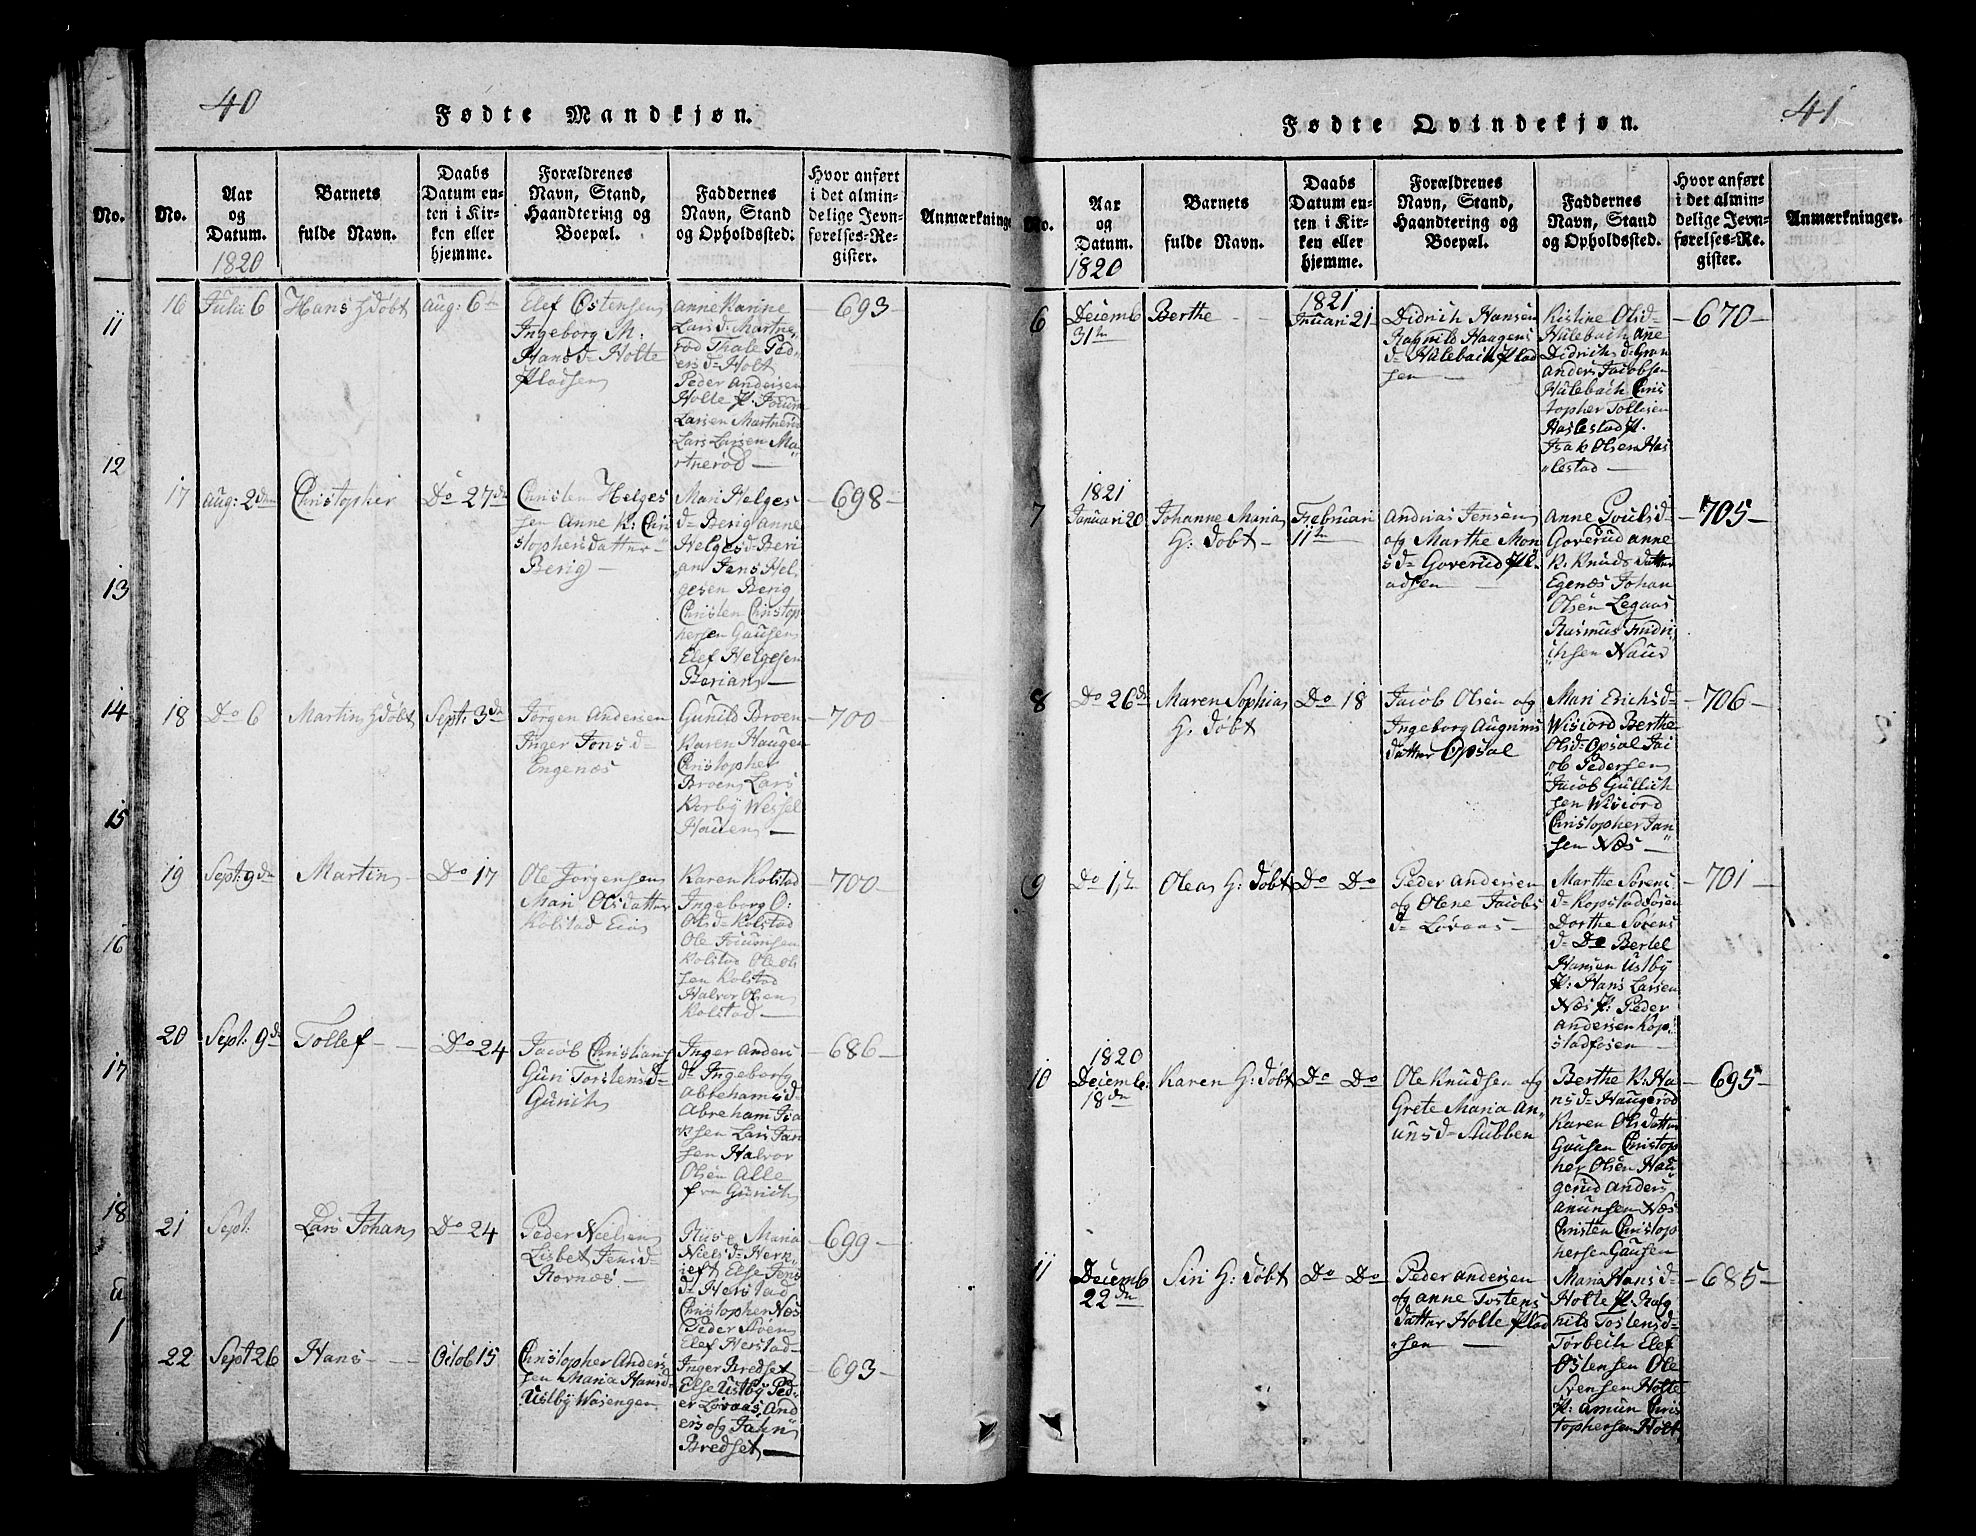 40
Fødte Mandkjøn.
No.
No.
Aar
og
Datum.
1820
Barnets
fulde Navn.
Daabs
Datum en-
ten i Kir-
ken eller
hjemme.
Forældrenes
Navn, Stand,
Haandtering og
Boepæl.
Faddernes
Navn, Stand
og Opholdssted.
Hvor anført
i det almin-
delige Jevn-
førelses-Re-
gister.
Anmærkninge
11
12
13
14
15
16
17
18
1
16
Julii 6
Hans H døbt
Aug: 6te
Elef Østensen
Ingeborg M:
Hans d- Holte
Pladsen
Anne Karine
Lars d- Martne
rød Thale Ped
ers d- Holt
Peder Andersen
Holte P: Jocum
Larsen Martnerud
Lars Larsen Ma
rtnerød
693
17
Aug: 2den
Christopher
Do 27de
Christen Helges
sen Anne K: Chri
stophersdatter
Berig
Mari Helges
d- Berig Anne
Helges d- Beri
an Jens Hel
gesen Berig
Christen Christop
hersen Gausen
Elef Helgesen
Berian
698
18
Do 6
Martin H døbt
Sept: 3de
Jørgen Andersen
Inger Jens d-
Engenæs
Gunild Broen
Karen Haugen
Christopher
Broen Lars
Korby Wessel
Hauen
700
19
Sept: 9de
Martin
Do 17
Ole Jørgensen
Mari Olsdatter
Kolstad Eia
Karen Kolstad
Ingeborg O:
Olsd- Kolstad
Ole Jocumsen
Kolstad Ole Ol
sen Kolstad
Halvor Olsen
Kolstad
700
20
Sept: 9de
Tollef
Do 24
Jacob Christians
Guri Torstensd-
Gunich
Inger Anders
d- Ingeborg
Abrehamsd
Abreham Isa
ksen Lars Jan
sen Halvor
Olsen Alle
fra Gunich
686
21
Sept:
Lars Johan
Do 24
Peder Nielsen
Lisbet Jensd-
Rovnæs
Maria
Niels d-
Else Jens
d- Herstad
Christopher Næs
Peder Støen
Elef Herstad
699
22
Sept 26
Hans
Octob 15
Christopher Anders
sen Maria Hansd-
Ustby Waængen
Inger Bredset
Else Ustby Ped
er Løvaas And
ers og Jahn
Bredset
693
41
Fødte Qvindekjøn.
No.
Aar
og
Datum.
1820
Barnets
fulde Navn.
Daabs
Datum en-
ten i Kir-
ken eller
hjemme.
Forældrenes
Navn, Stand,
Haandtering og
Boepæl.
Faddernes
Navn, Stand
og Opholdssted.
Hvor anført
i det almin-
delige Jevn-
førelses-Re-
gister.
Anmærkninger.
6
Decemb
31te
Berthe
1821
Januari 21
Didrich Hansen
Ragnild Haagens
d- Hulebach Plad
sen
Kistine Olsd-
Hulebach Ane
Didrichs d- Gran
Anders Jacobsen
Hulebach Chris
topher Tollefsen
Haslestad P.
Isak Olsen Has
lestad
670
7
1821
Januari 20
Johanne Maria
H: døbt
Februari
11te
Andrias Jensen
og Marthe Mon
sd- Goverud Pl
adsen
Anne Poulsd-
Goverud Anne
K. Knudsdatter
Egenæs Johan
Olsen Legaas
Rasmus Fridri
chsen Naur
705
8
Do 26de
Maren Sophia
H: døbt
Do 18
Jacob Olsen og
Ingeborg Augrims
datter Opsal
Mari Erichsd-
Wiscord Berthe
Olsd- Opsal Jac
ob Pedersen
Jacob Gullich
sen Wiscord
Christopher Jan
sen Næs
706
9
Do 1,2
Olea H: døbt
Do Do
Peder Andersen
og Olene Jacobs
d- Løvaas
Marthe Sørens
d- Kopstadfosen
Dorthe Sørens
d- Do Bertel
Hansen Ustby
P: Hans Larsen
Næs P: Peder
Andersen Kop
stadfosen
701
10
1820
Decemb.
18de
Karen H: døbt
Do Do
Ole Knudsen og
Grete Maria An
unsd- Stubben
Berthe K. Ha
nsd- Haugerød
Karen Olsdatter
Gausen Christop
her Olsen Hau
gerud Anders
Anunsen Næs
Christen Christop
hersen Gausen
695
11
Decemb
22de
Siri H: døbt
Do Do
Peder Andersen
og Anne Tostens
datter Holte Plad
sen
Maria Hans d-
Holte P. Rag
nild Tostensd-
Torbech Elef
Østensen Ole
Svensen Holte
P: Amun Chris
tophersen Holt
685